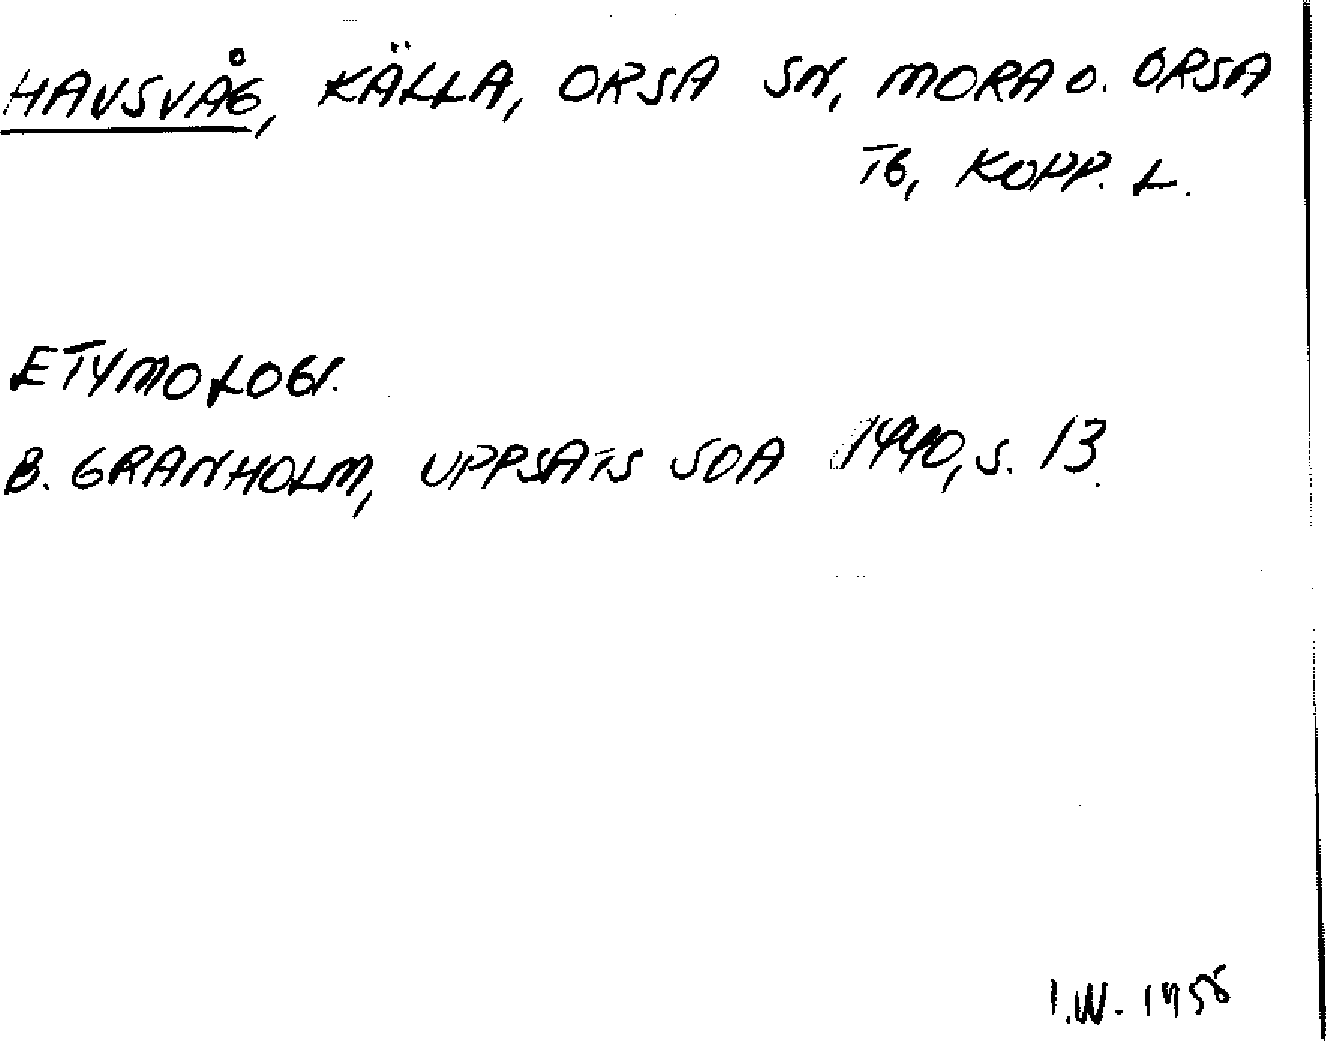 HAVSVÅG, KÄLLA, ORSA SN, MORA O. ORSA
TG, KOPP. L.
ETYMOLOGI.
B. GRANHOLM, UPPSATS SOA 1940, S. 13.
I.W. 1958